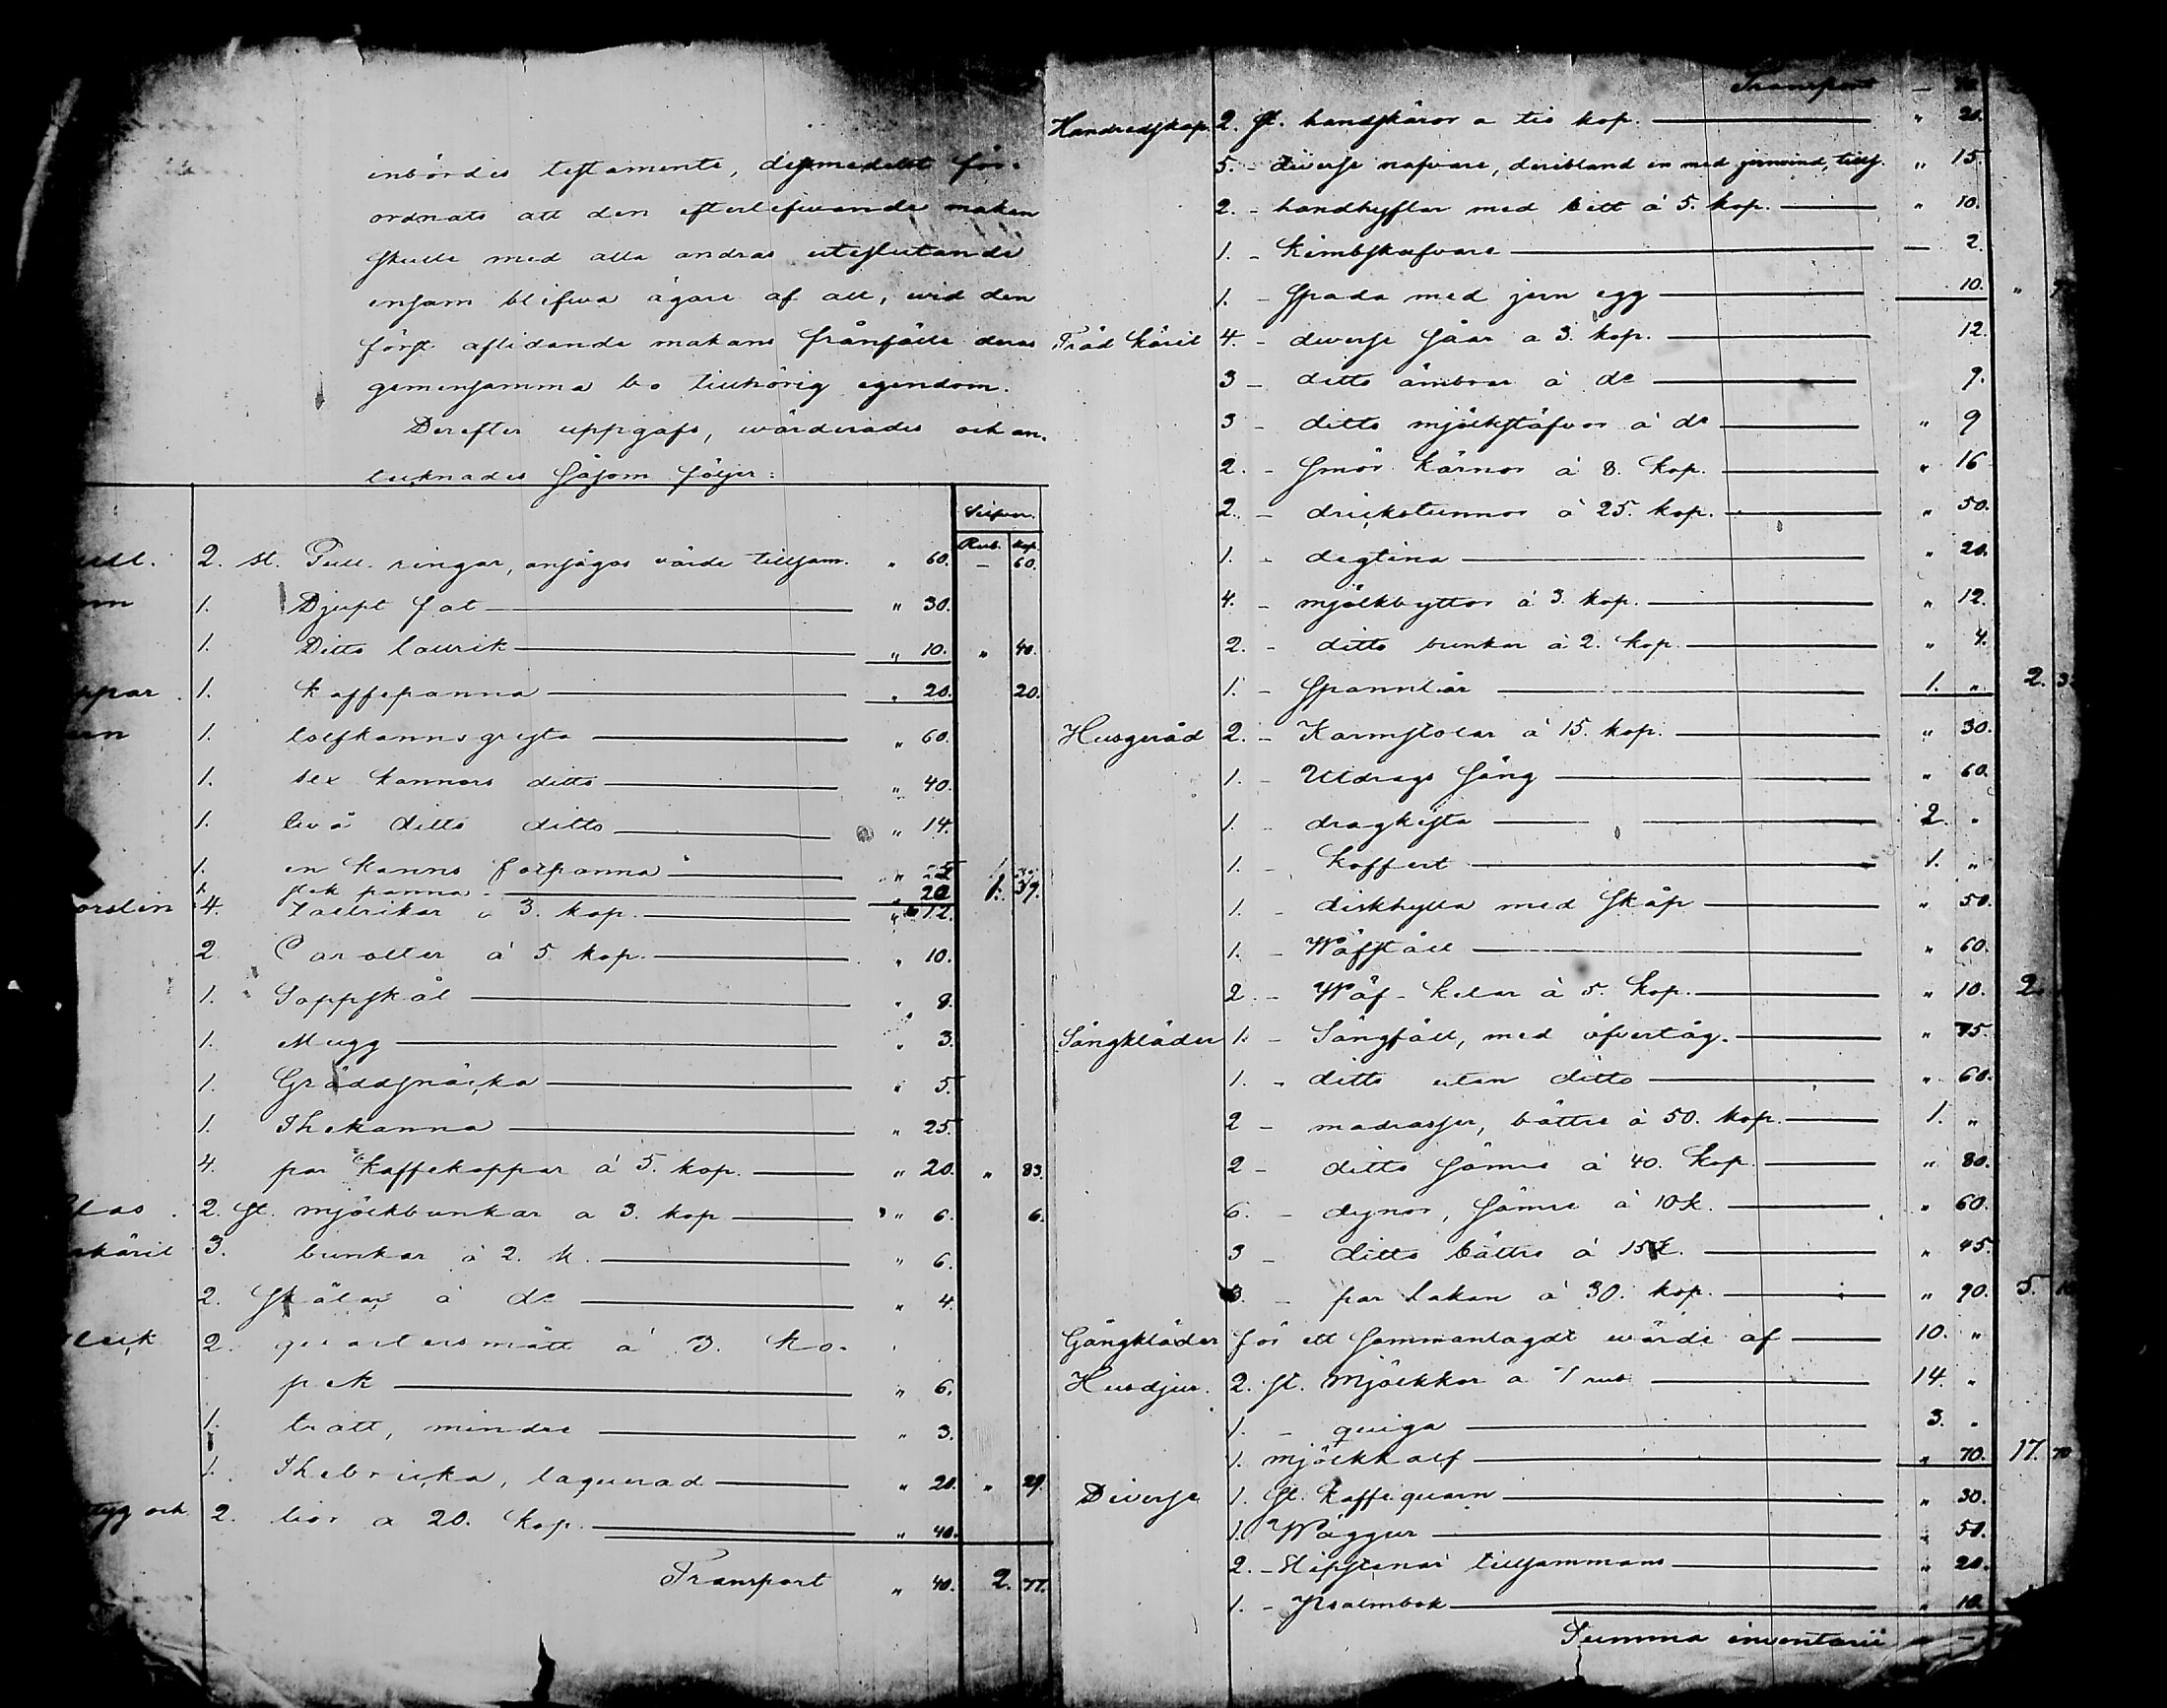 inbördes testamente, dessmedelst för-
ordnats att den efterlefwande maken
skulle med alla andras uteslutande
ensam blifwa ägare af all, wid den
först aflidande makans frånfälle deras
gemensamma bo tillhörig egendom.
Derefter uppgafs, wärderades och an-
tecknades såsom följer:
Silfver.
Rub. kop.
2. st. Gull. ringar, ansågos wärde tillsam. " 60. — 60.
1. Djupt fat " 30.
1. Ditto tallrik " 10. " 40.
1. Kaffepanna " 20. 20.
1. tolfkannsgryta " 60.
1. sex kannors ditto " 40.
1. två ditto ditto " 14.
1. en kanns
1. stek panna 20 1. 39.
4. Tallrikar a 3. kop. " 12.
2 Carotter á 5 kop. " 10.
1. Soppskål " 8.
1. Mugg " 3.
1. Gräddsnäcka " 5.
1. Thekanna " 25.
4. par Kaffekoppar á 5. kop. " 20. " 83.
2. st. mjölkbunkar a 3. kop " 6. 6.
3. bunkar á 2. k. " 6.
2. Skålar á do " 4.
2. quartersmått á 3. ko-
pek " 6.
1. tratt, mindre " 3.
1. Thebricka, laquerad " 20. " 29.
2. liar a 20. kop. " 40.
Transport " 40. 2. 77.
Transport
Handredskap. 2. st. handskäror a tio kop. " 20.
5. - diverse nafvare, deribland en med jernvind, tills. " 15.
2. - handhyflar med bett á 5. kop. " 10.
1. - Kimbskafvare — 2.
1. - Spada med jern egg 10.
Träd Käril 4. - diverse såar a 3. kop. 12.
3 - ditto ämbar á do 9.
3 - ditto mjölkstäfvor á do " 9
2. - Smör kärnor á 8. kop. " 16
2. - drickstunnor á 25. kop. " 50.
1. - degtina " 20.
4. - mjölkbyttor á 3. kop. " 12.
2. - ditto bunkar á 2. kop. " 4.
1. - Spannlår 1. " 2.
Husgeråd 2. - Karmstolar á 15. kop. " 30.
1. - Utdrags säng " 60.
1. - dragkista 2. "
1. - Koffert 1. "
1. - diskhylla med skåp " 50.
1. - Wäfställ " 60.
2. - Wäf-skelar á 5. kop. " 10. 2.
Sängkläder 1. - Sängfäll, med öfvertåg. " 75.
1. - ditto utan ditto " 60.
2 - madrasser, bättre á 50. kop. 1. "
2 - ditto sämre á 40. kop. " 80.
6. - dynor, sämre á 10 k. " 60.
3 - ditto bättre á 15 k. " 45.
3. - par lakan á 30. kop. " 90. 5.
Gångkläder för ett sammanlagdt wärde af 10. "
Husdjur. 2. st. Mjölkkor a 7 rub 14. "
1. - quiga 3. "
1. mjölkkalf " 70. 17. 70
Diverse 1. st. Kaffequarn " 30.
1. Wäggur " 50.
2. - Slipstenar tillsammans " 20.
1. - Psalmbok " 10.
Summa inventarii